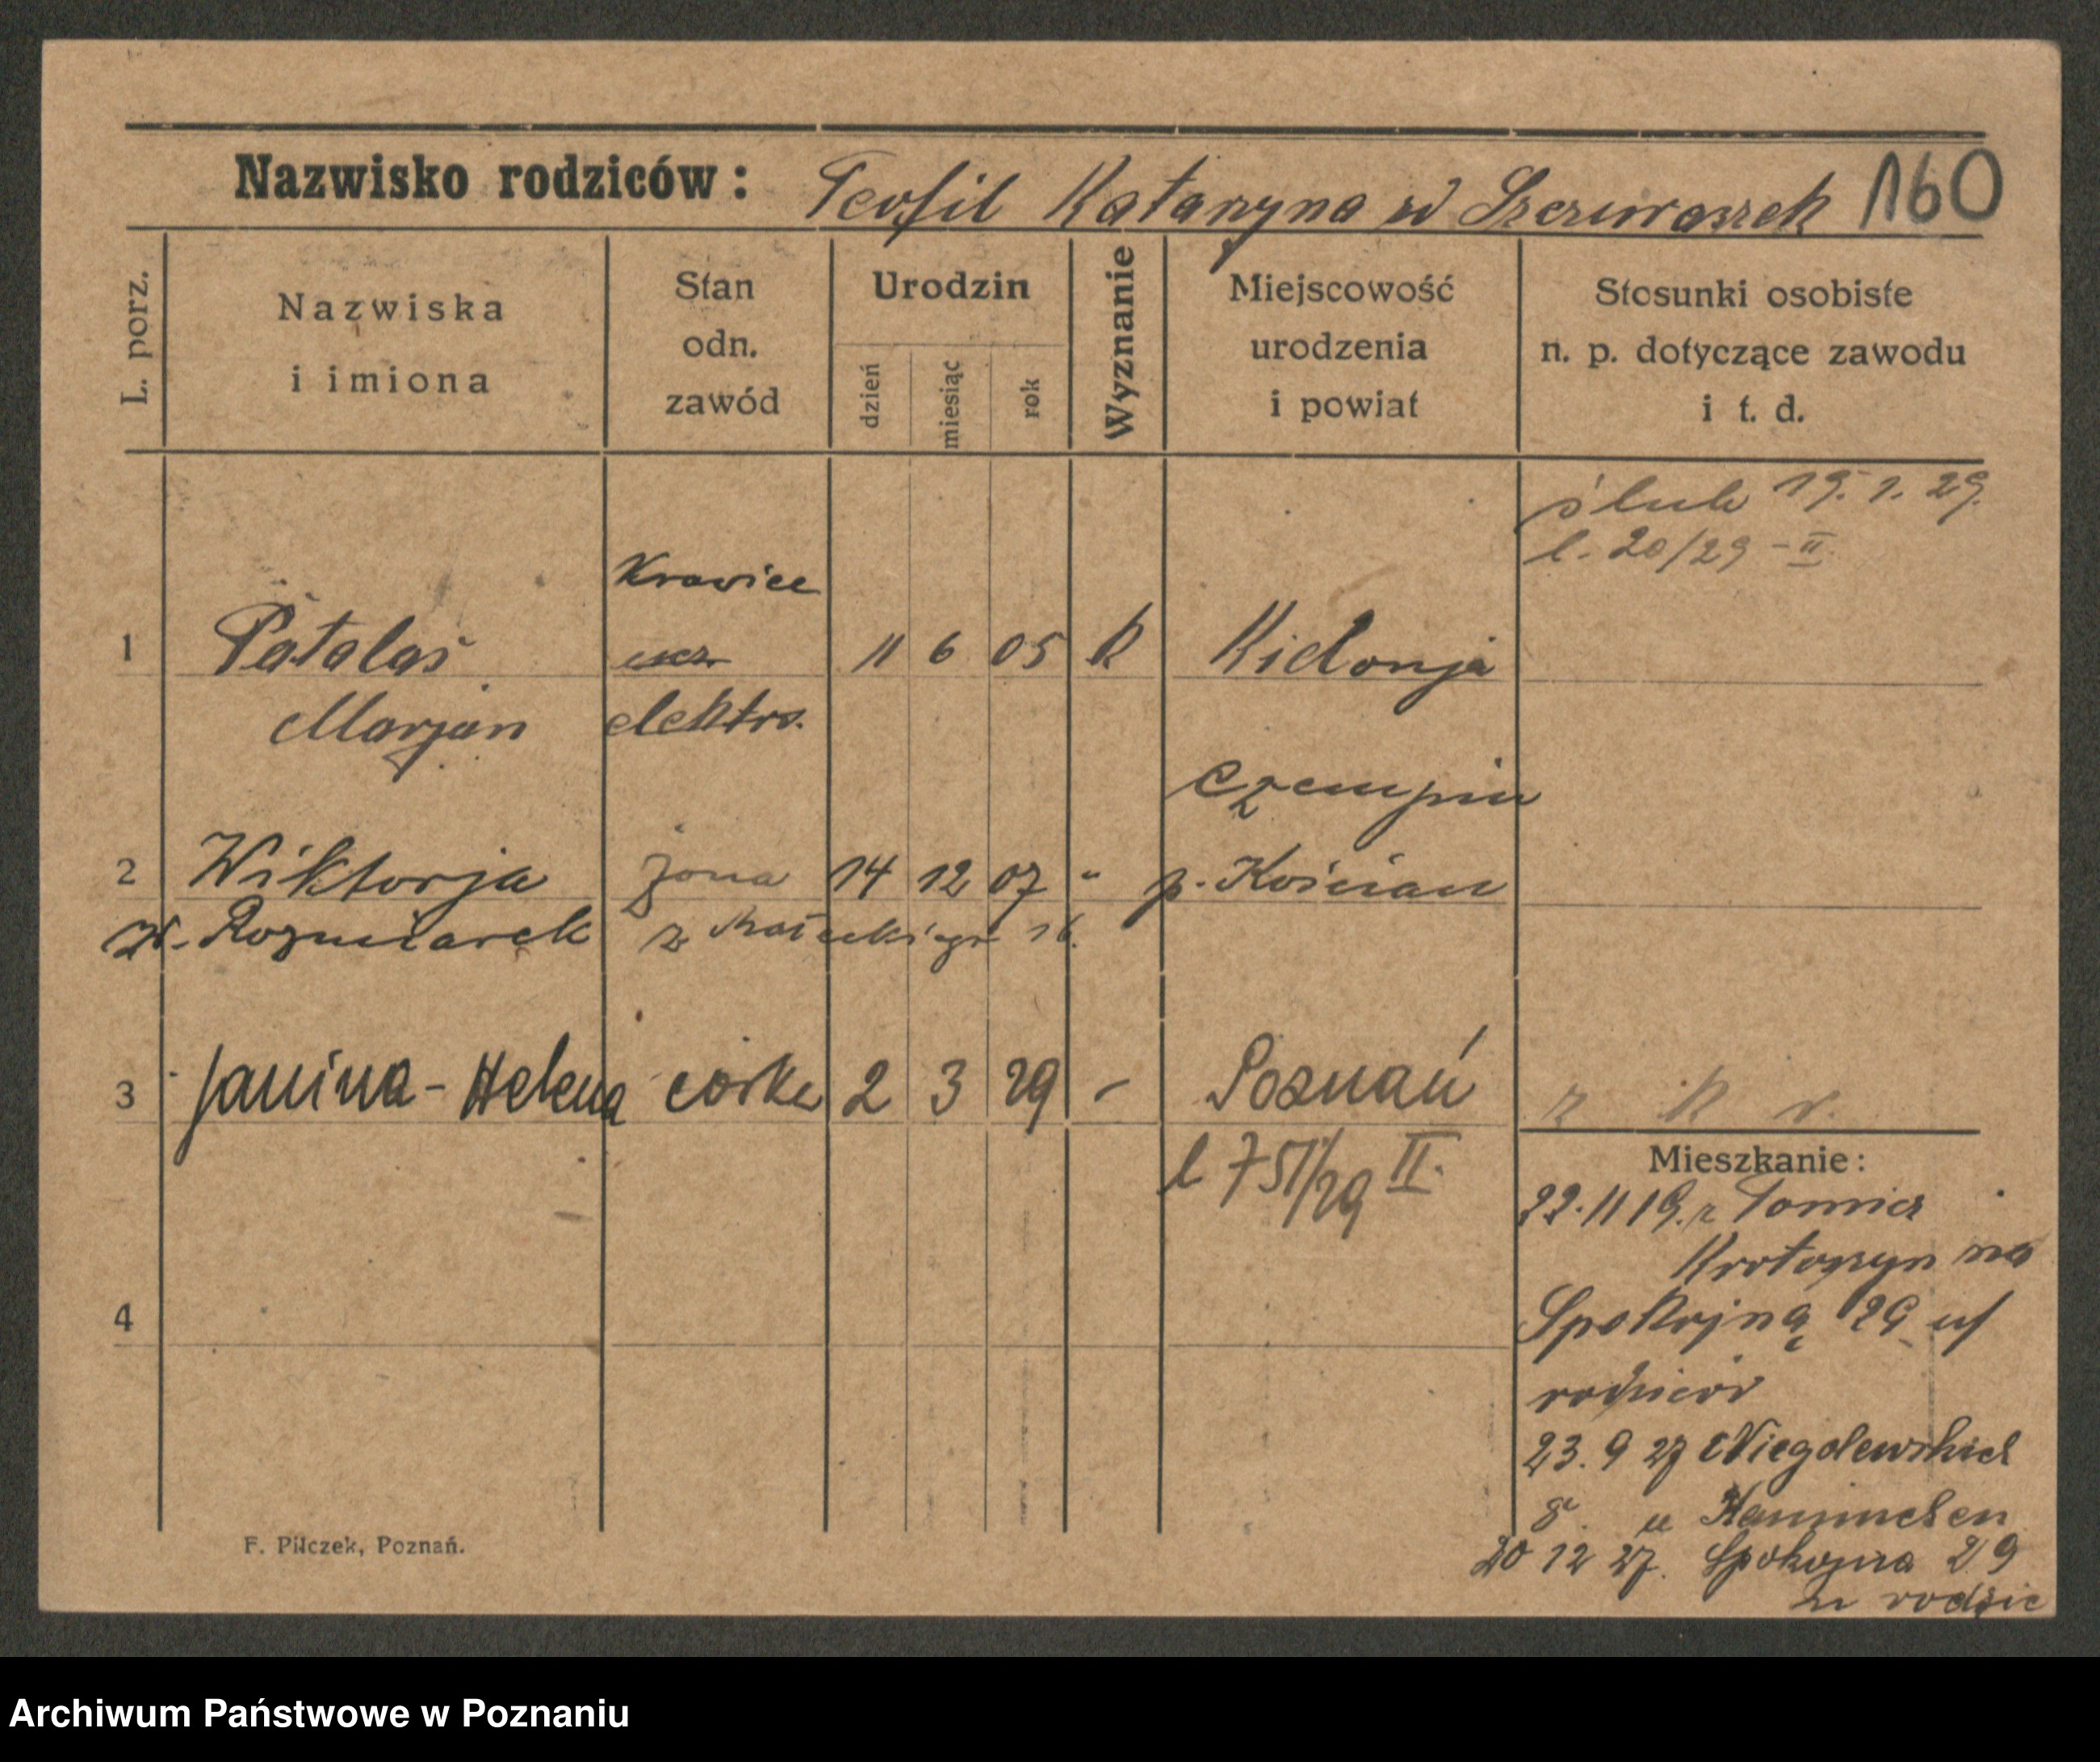 Nazwisko rodziców: Teofil Katarzyna zd Szczuraszek 160
L. porz.
Nazwiska
i imiona
Stan
odn.
zawód
Urodzin
dzień
miesiąc
rok
Wyznanie
Miejscowość
urodzenia
i powiat
Stosunki osobiste
n. p. dotyczące zawodu
i t. d.
ślub 19. 1. 29.
l. 20/29 - II
Krawiec
1 Patalas ucz. 11 6 05 K Kidonja
Marjan elektro.
Czempiń
2 Wiktorja żona 14 12 07 " p. Kościan
z 16.
3 Janina - Helena córka 2 3 29 - Poznań
l 751/29 II.
z k r.
Mieszkanie:
22. 11 19. z Tomice
Krotoszyn na
Spokojną 29 u/
rodziców
23. 9 27 Niegolewskich
8 u
20 12 27. Spokojna 29
u rodzic
4
F. Pilczek, Poznań.
Archiwum Państwowe w Poznaniu